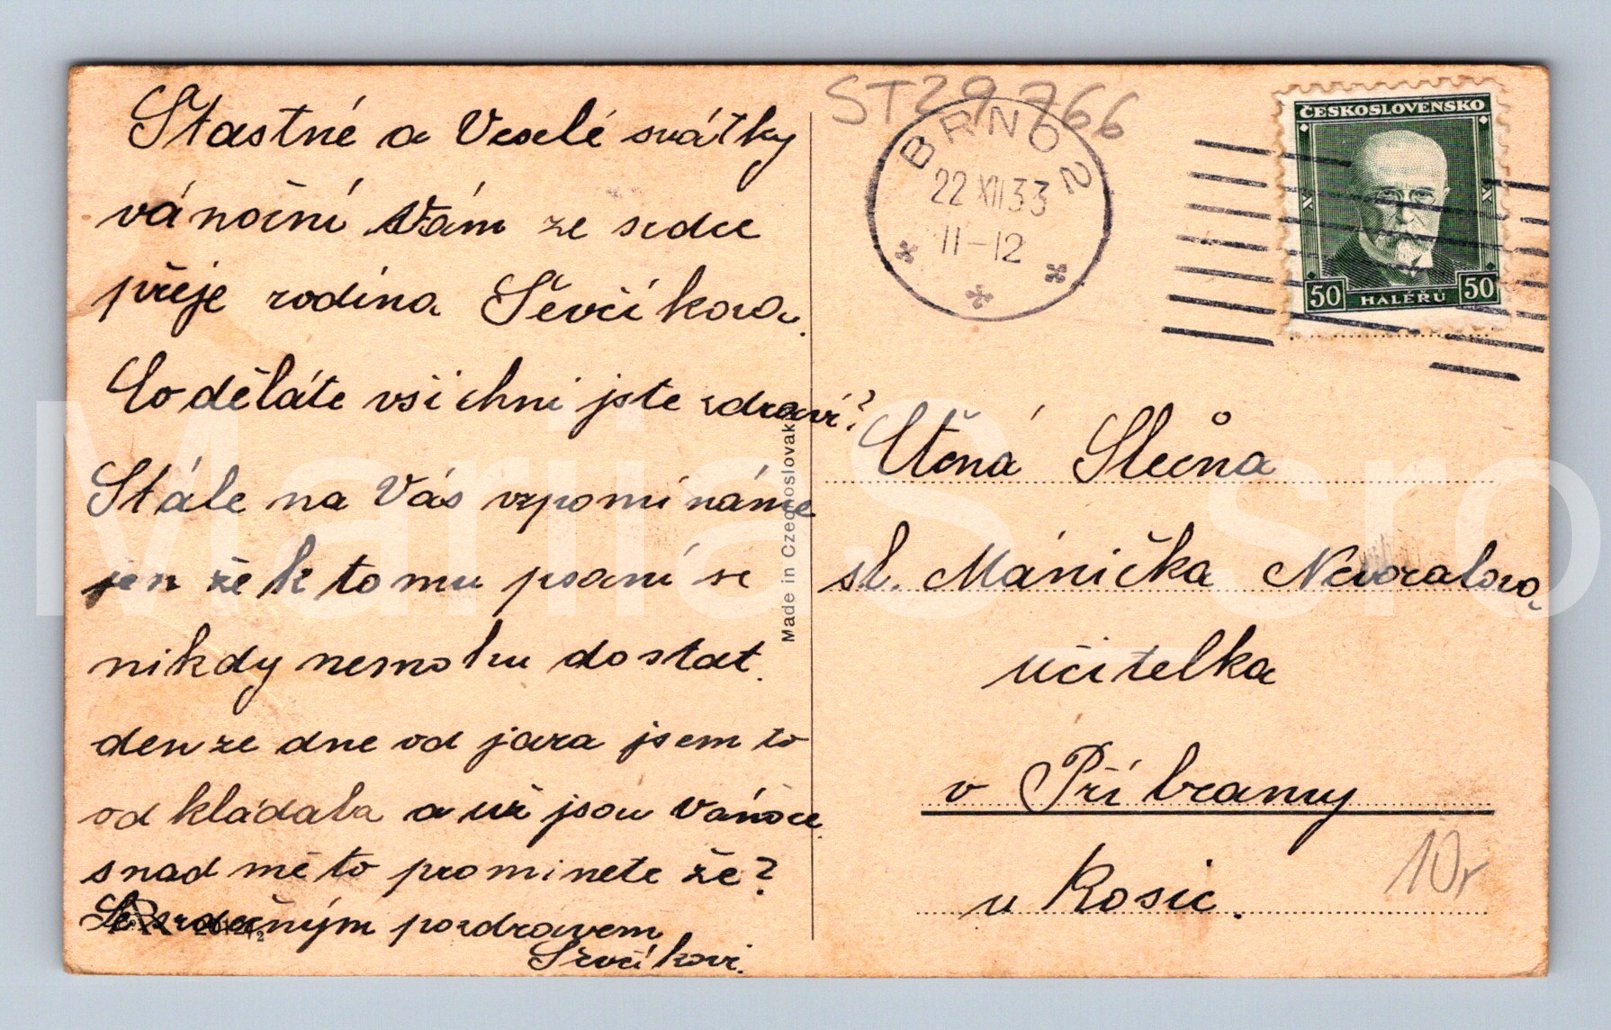 Štastné a Veselé svátky
vánoční Vám ze srdce
přeje rodina Ševčíkova.
Co děláte všichni jste zdrávi?
Stále na Vás vzpomínáme
jen že k tomu psaní se
nikdy nemohu dostat.
den ze dne od jara jsem to
odkládala a už jsou Vánoce.
snad mě to prominete že?
Se srdečným pozdravem
Ševčíkovi.
Made in Czechoslovakia
ST29766
BRNO 2
22 XII 33
11-12
ČESKOSLOVENSKO
50 HALÉŘŮ 50
Ctěná Slečna
sl. Mánička Nevoralova,
učitelka
v Příbramy
u Rosic.
10,-
MariiaS_sro